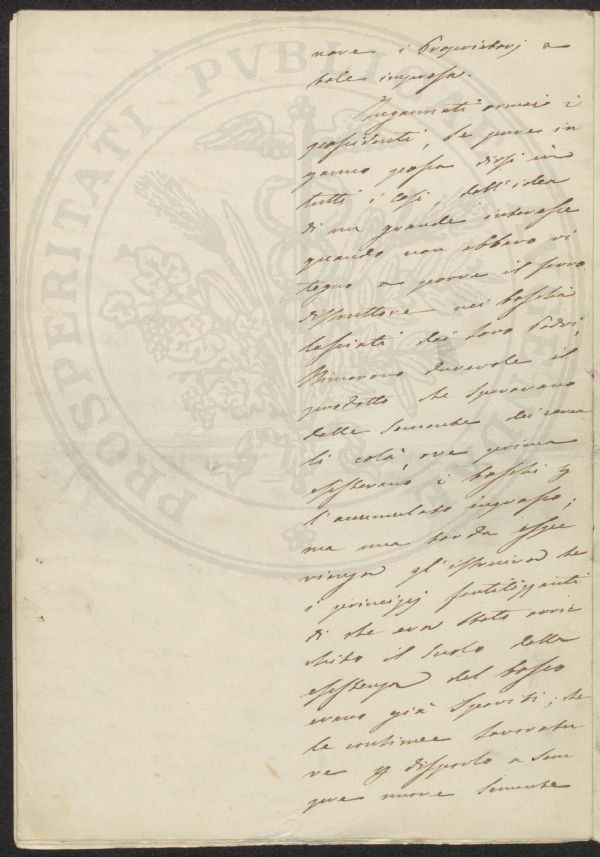 nare i Proprietarj a
tale impresa.
Ingannati ormai i
possidenti, se pure in
ganno possa dirsi in
tutti i casi, dall'idea
di un grande interesse
quando non ebbero ri
tegno a porre il ferro
distruttore nei boschi
lasciati dai loro Padri,
stimavano durevole il
prodotto che speravano
dalle semente dei cerea
li colà, ove prima
esistevano i boschi e
l'accumulato ingrasso;
ma una tarda espe
rienza gl'istruiva che
i principj fertilizzanti
di che era stato arric
chito il suolo dalla
esistenza del bosco
erano già spariti; che
le continue lavoratu
re e disporlo a sem
pre nuove semente
PROSPERITATI PVBLICAE